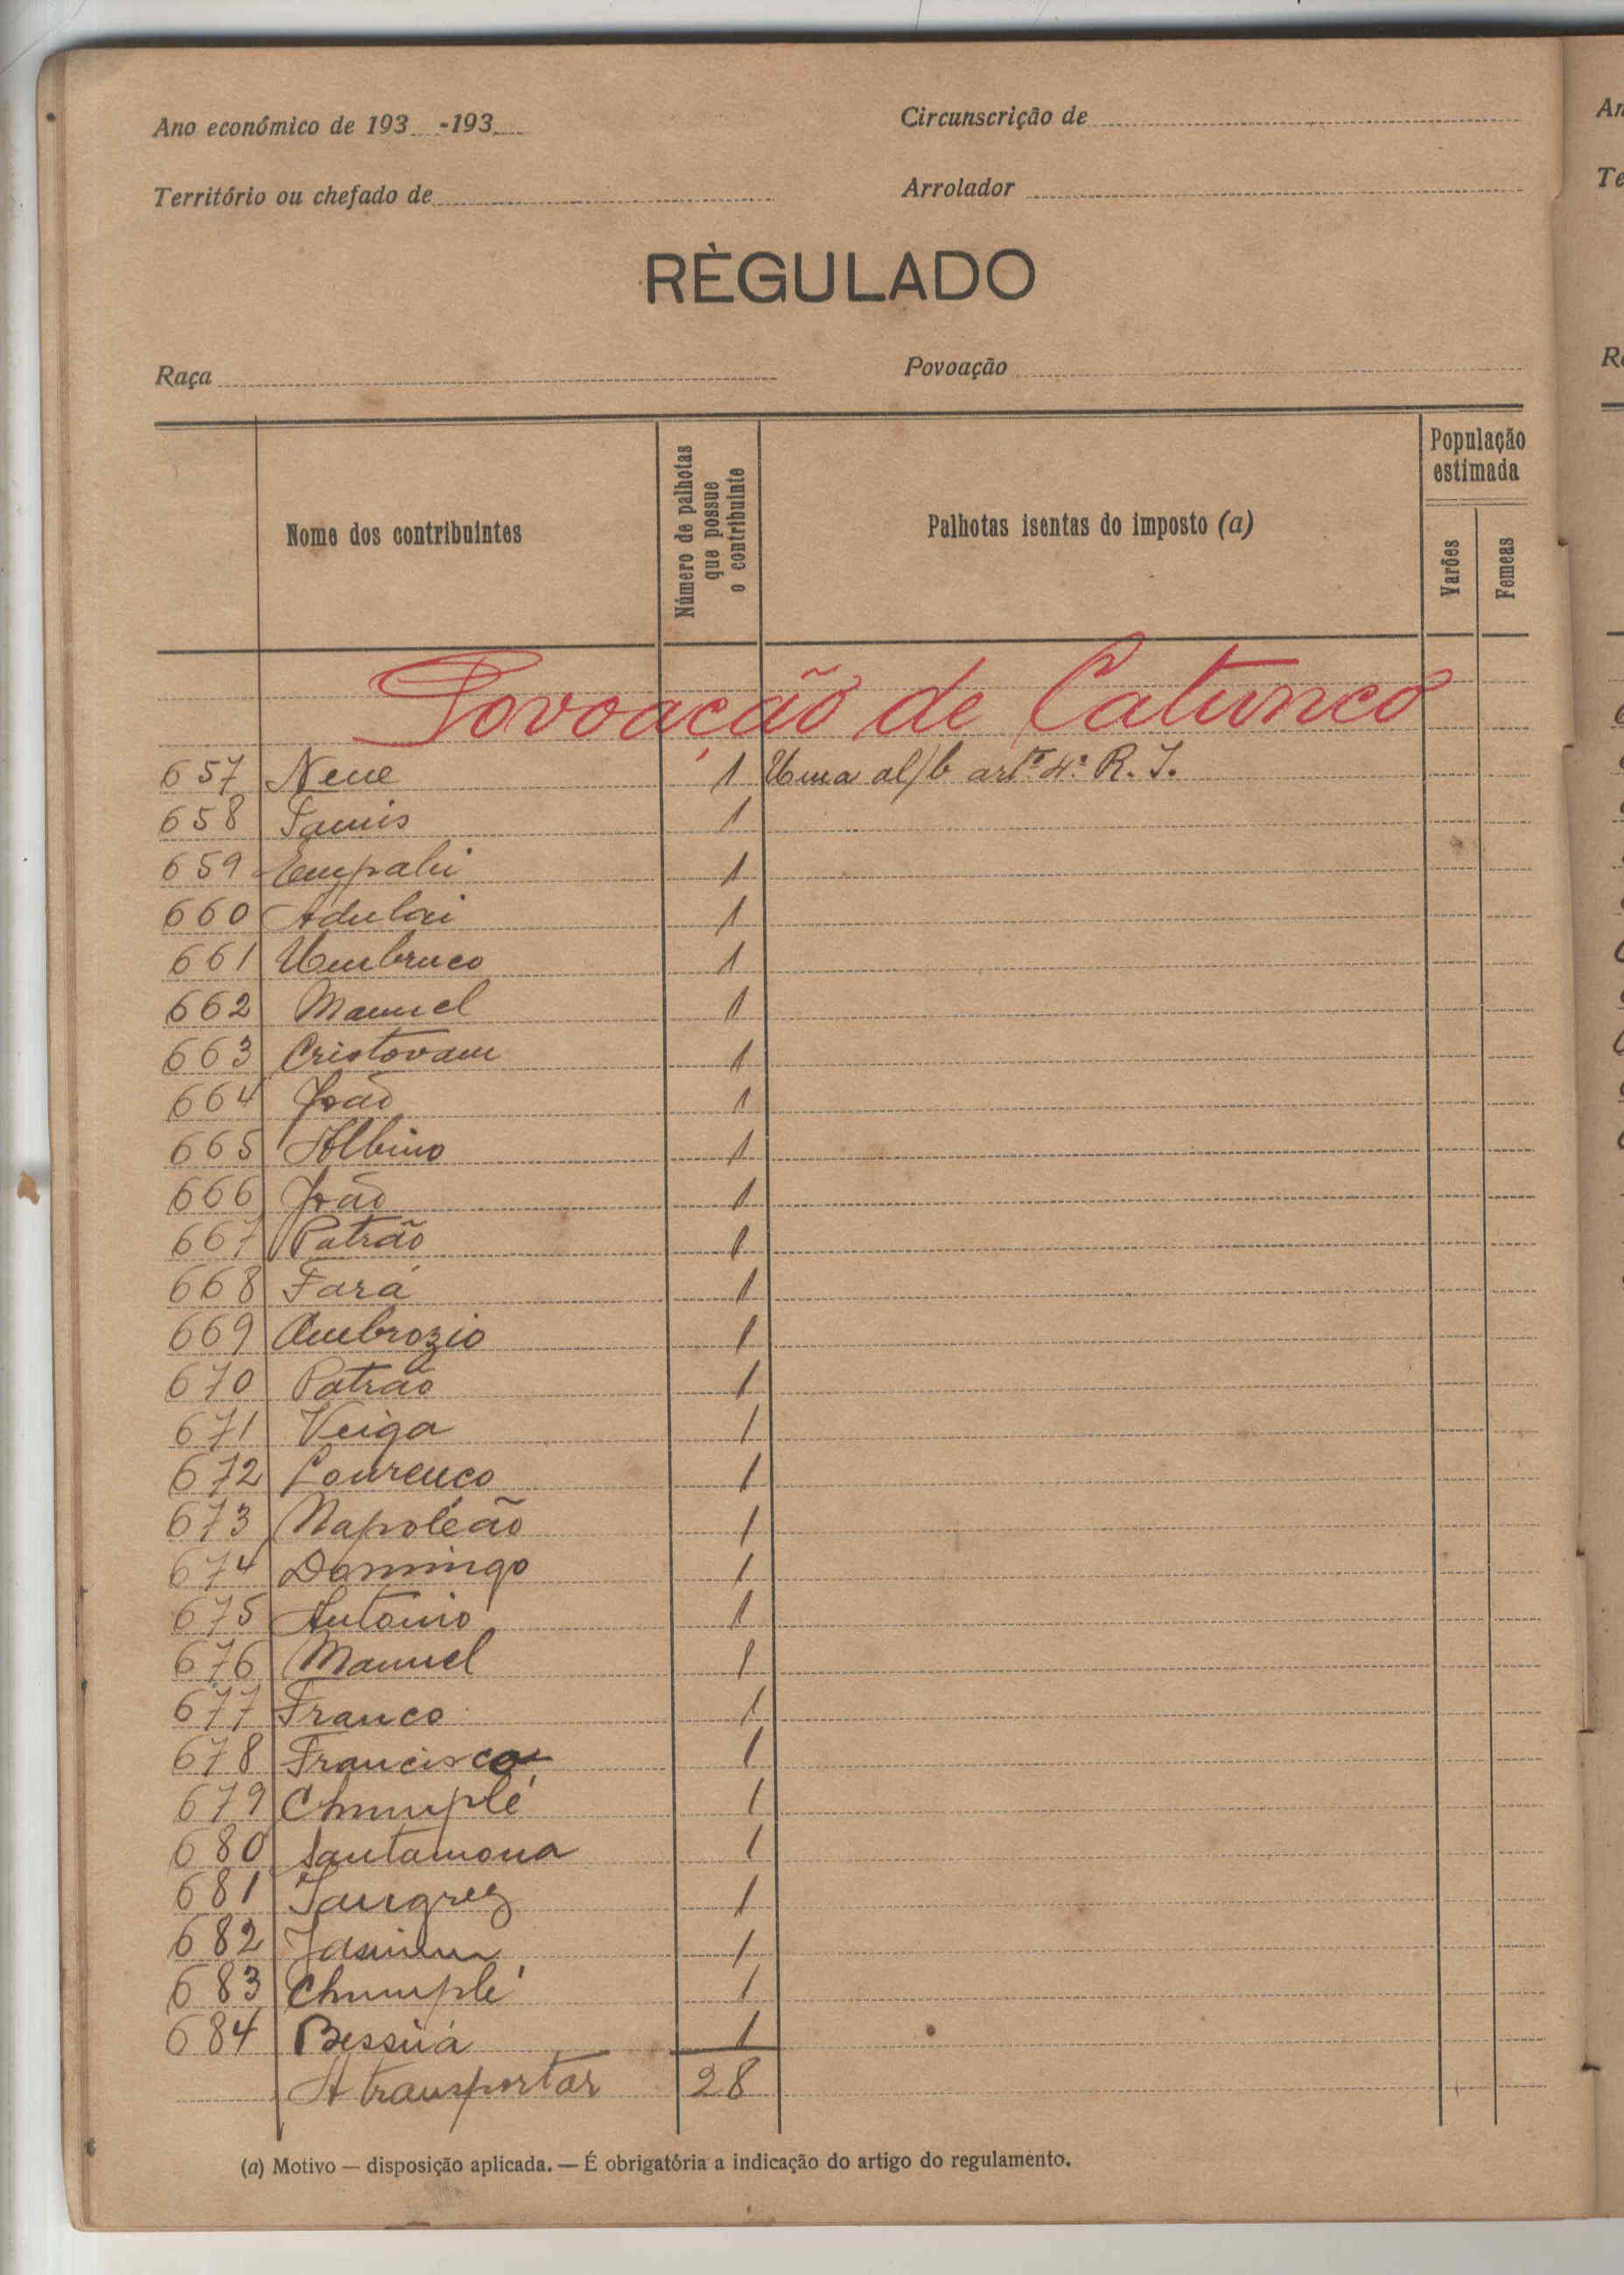 Ano económico de 193 -193
Circunscrição de
Território ou chefado de
Arrolador
RÈGULADO
Raça
Povoação
Nome dos contribuintes
Número de palhotas que possue o contribuinte
Palhotas isentas do imposto (a)
População estimada
Varões
Femeas
Povoação de Catunco
657 Nene 1 Uma al/b artº 4º R. I.
658 1
659 Empabi 1
660 Adulai 1
661 Umbruco 1
662 Manuel 1
663 Cristovam 1
664 João 1
665 Albino 1
666 João 1
667 Patrão 1
668 Fará 1
669 Ambrozio 1
670 Patrão 1
671 Veiga 1
672 Lourenço 1
673 Napoleão 1
674 Domingo 1
675 Antonio 1
676 Manuel 1
677 Franco 1
678 Francisco 1
679 Chumplé 1
680 Santamona 1
681 1
682 1
683 Chumplé 1
684 Bessuá 1
A transportar 28
(a) Motivo — disposição aplicada. — É obrigatória a indicação do artigo do regulamento.